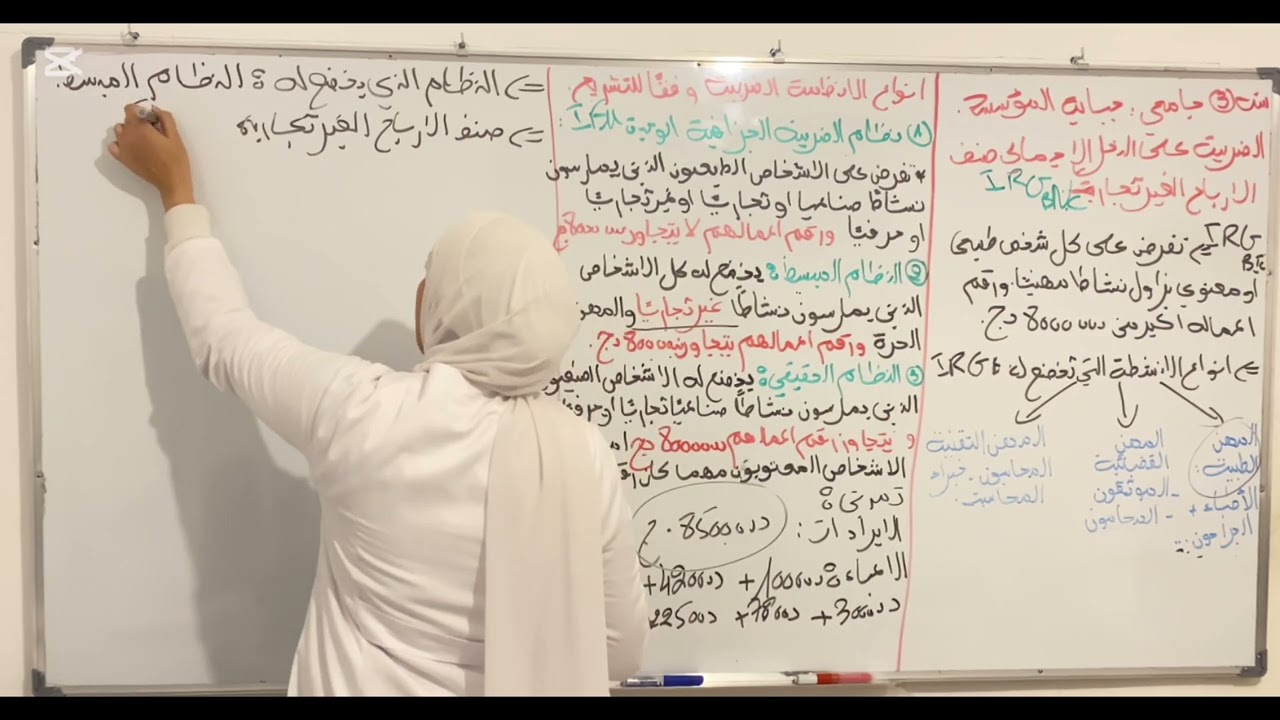 سنة ③ جامعي: جباية المؤسسة
الضريبة على الدخل الإجمالي صنف
الارباح الغير تجارية IRG BNC
IRG تفرض على كل شخص طبيعي
BNC
او معنوي يزاول نشاطا مهنيا ورقم
اعماله اكبر من 8000000 دج.
=> انواع الانشطة التي تخضع ل IRG
المهن الطبية:
الأطباء +
الجراحون
المهن
القضائية
- الموثقون
- المحامون
المهن التقنية
المحاسبون - خبراء
المحاسبة
انواع الانظمة الضريبية وفقا للتشريع.
① نظام الضريبة الجزافية الوحيدة IFU:
* تفرض على الاشخاص الطبعيون الذين يمارسون
نشاطا صناعيا او تجاريا او غير تجاريا
او حرفيا ورقم اعمالهم لا يتجاوز 8000000 دج
② النظام المبسط: يخضع له كل الاشخاص
الذين يمارسون نشاطا غير تجاريا والمهن
الحرة ورقم اعمالهم يتجاوز 8000000 دج.
③ النظام الحقيقي: يخضع له الاشخاص
الذين يمارسون نشاطا صناعيا تجاريا او
و يتجاوز رقم اعمالهم 8000000 دج
الاشخاص المعنويون مهما كان
تمرين:
الايرادات: 8500000 دج
الاعباء: 1000000 + 42000 +
300000 + 78000 + 225000
=> النظام الذي يخضع له: النظام المبسط.
=> صنف الارباح الغير تجارية